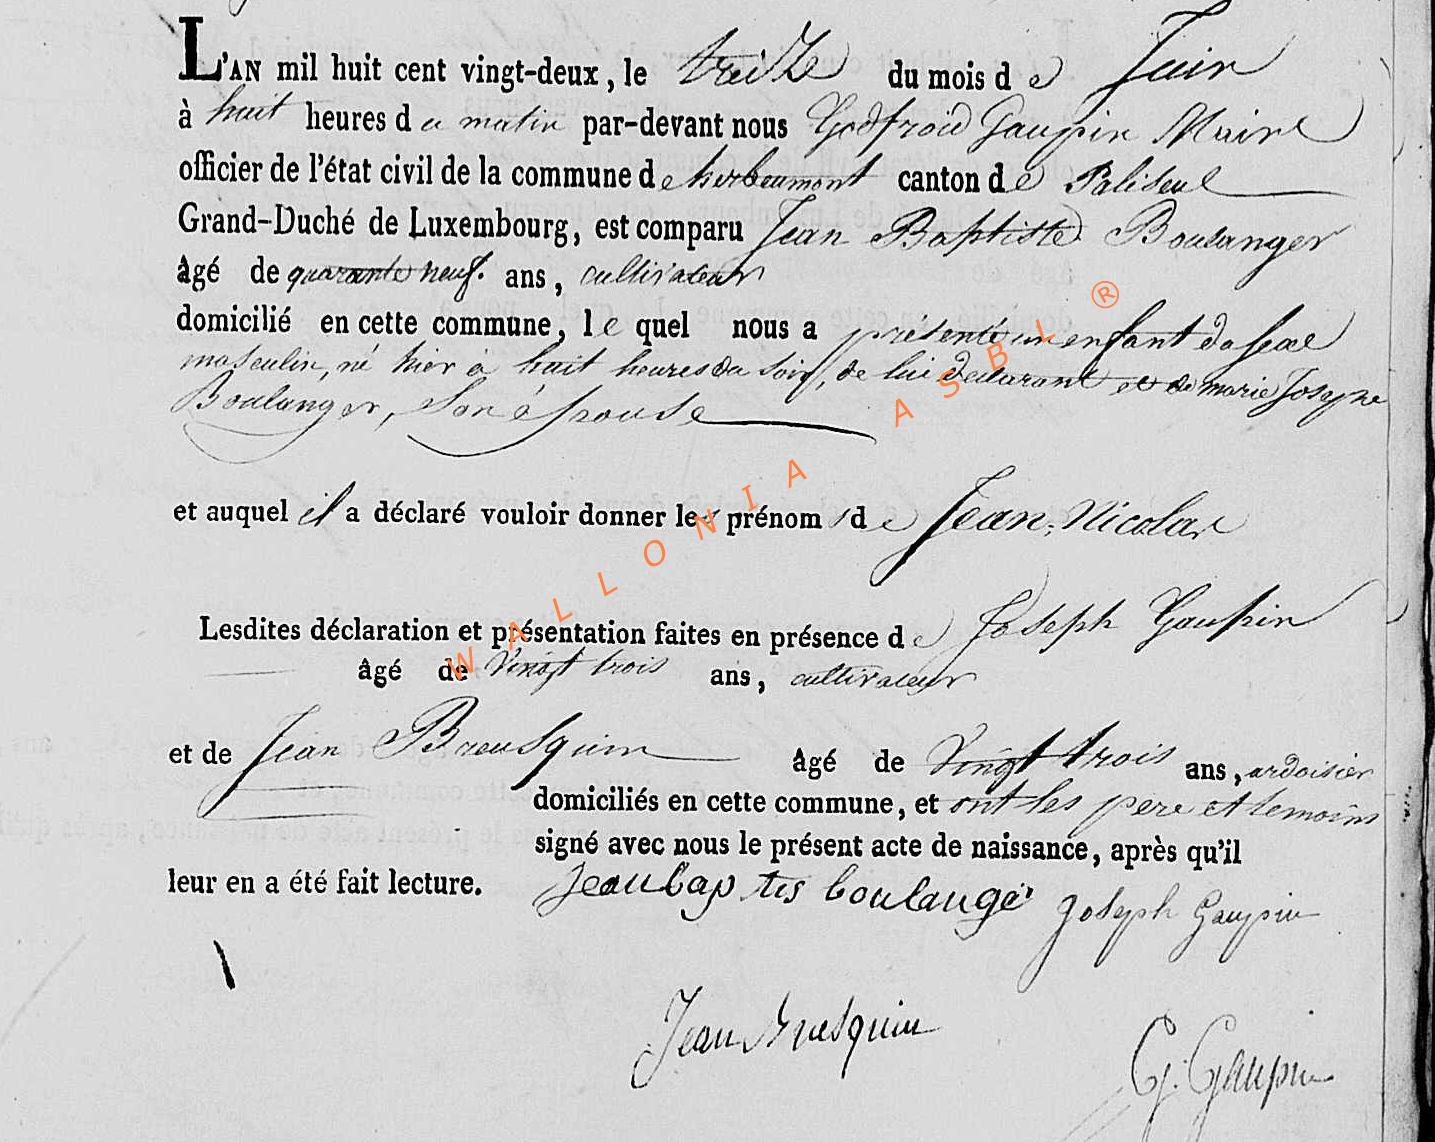 L'AN mil huit cent vingt-deux, le treize du mois de Juin
à huit heures du matin par-devant nous Godfroid Gaupin Maire
officier de l'état civil de la commune de herbeumont canton de Paliseul
Grand-Duché de Luxembourg, est comparu Jean Baptiste Boulanger
âgé de quarante neuf ans, cultivateur
domicilié en cette commune, lequel nous a présenté un enfant du sexe
masculin, né hier à huit heures du soir, de lui déclarant et de marie Josephe
Boulanger, Son épouse
et auquel il a déclaré vouloir donner les prénoms de Jean Nicolas
Lesdites déclaration et présentation faites en présence de Joseph Gaupin
âgé de Vingt trois ans, cultivateur
et de Jean Bruesquin âgé de Vingt trois ans, ardoisier
domiciliés en cette commune, et ont les père et temoins
signé avec nous le présent acte de naissance, après qu'il
leur en a été fait lecture. Jean baptis boulange Joseph Gaupin
Jean Bruesquin
G. Gaupin
WALLONIA ASBL ®